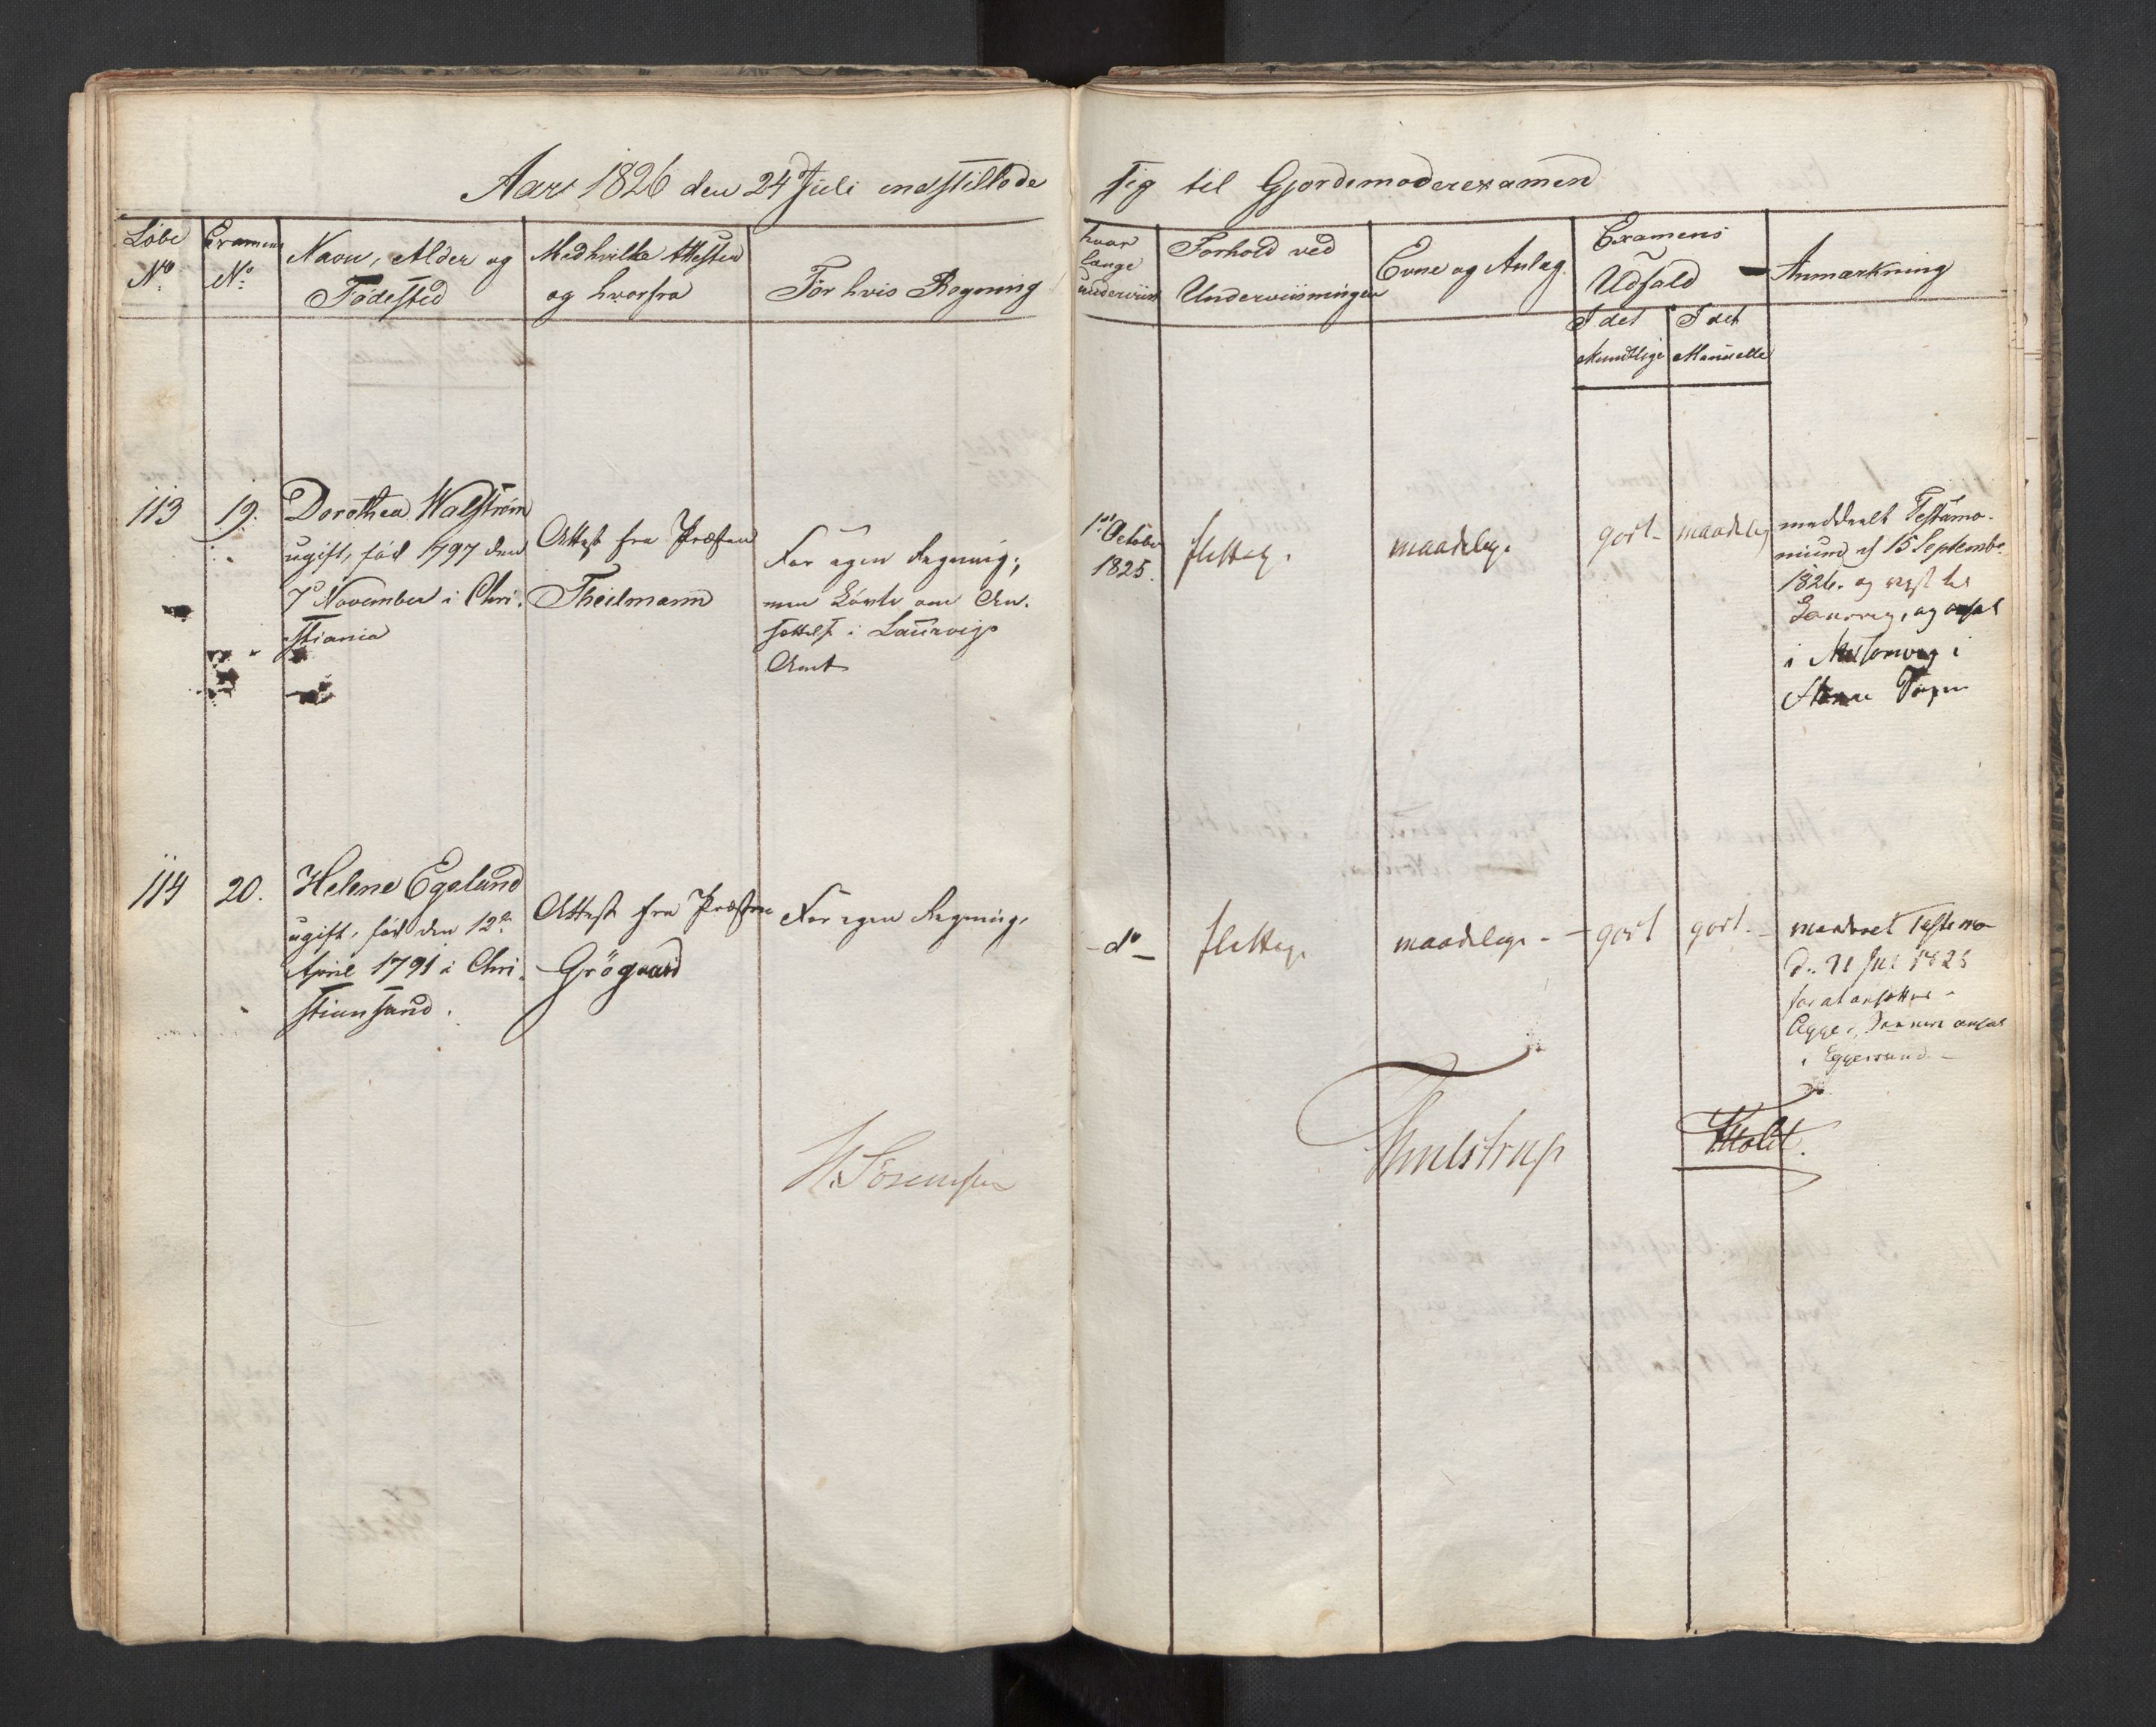 Aar 1826 den 24d Juli indstillede sig til Gjordemoderexamen
Løbe No.
Examens No.
Navn, Alder og
Fødested
Med hvilke Attester
og hvorfra
For hvis Regning
hvor
længe
underviist
Forhold ved
Underviisningen
Evne og Anlæg.
Examens
Udfald
I det
Mundtlige
I det
Manuelle
Anmærkning
113
19.
Dorothea Walstrøm
ugift, født 1797 den
7d November i Chri-
stiania
Attest fra Præsten
Theilmann
For egen Regning;
men Løvte om An-
sættelse i Laurvigs
Amt
1ste October
1825.
flittig.
maadelige
godt
maadelig
meddeelt Testimo-
nium af 15 Septembr
1826. og rejst til
Laurvig, og ansat
i
114
20.
Helene Egeland
ugift, født den 12te
April 1791 i Chri-
stiansand.
Attest fra Præsten
Grögaard
For egen Regning.
do
flittig.
maadelige
godt
godt
Testimo
1828
for at ansættes
ansat
i Eggersund
N. Sörenssen
Thulstrup
FHolst.